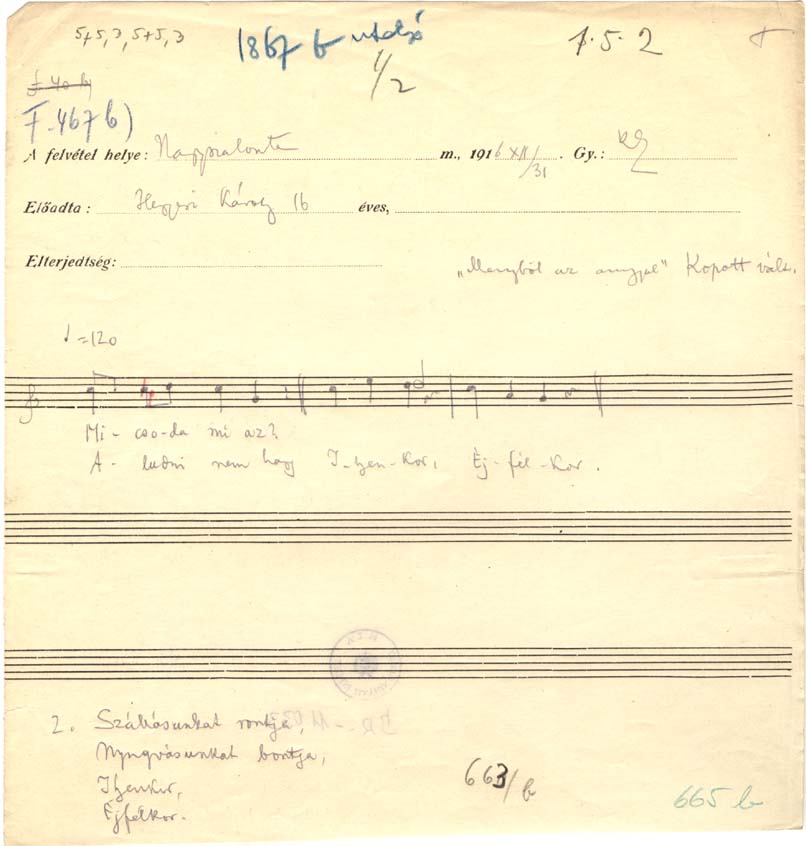 5+5,3,5+5,3
1867 b utolsó
1/2
1.5.2
F. 467 b)
A felvétel helye: Nagyszalonta m., 1916 XII/31. Gy.: KZ
Előadta: Hegyesi Károly 16 éves,
Elterjedtség:
„Menyből az angyal" Kopott vált.
=120
Mi-cso-da mi az?
A-ludni nem hagy I-lyen-kor, Éj-fél-kor.
2. Szállásunkat rontja,
Nyugvásunkat bontja,
Ilyenkor,
Éjfélkor.
663/b
665 b